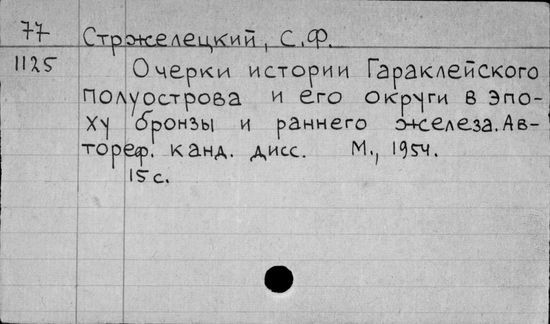 77 Стржелецкий, С.Ф.
1125 Очерки истории Гараклейского
полуострова и его округи в эпо-
ху бронзы и раннего железа. Ав-
тореф. канд. дисс. М., 1954.
15 с.